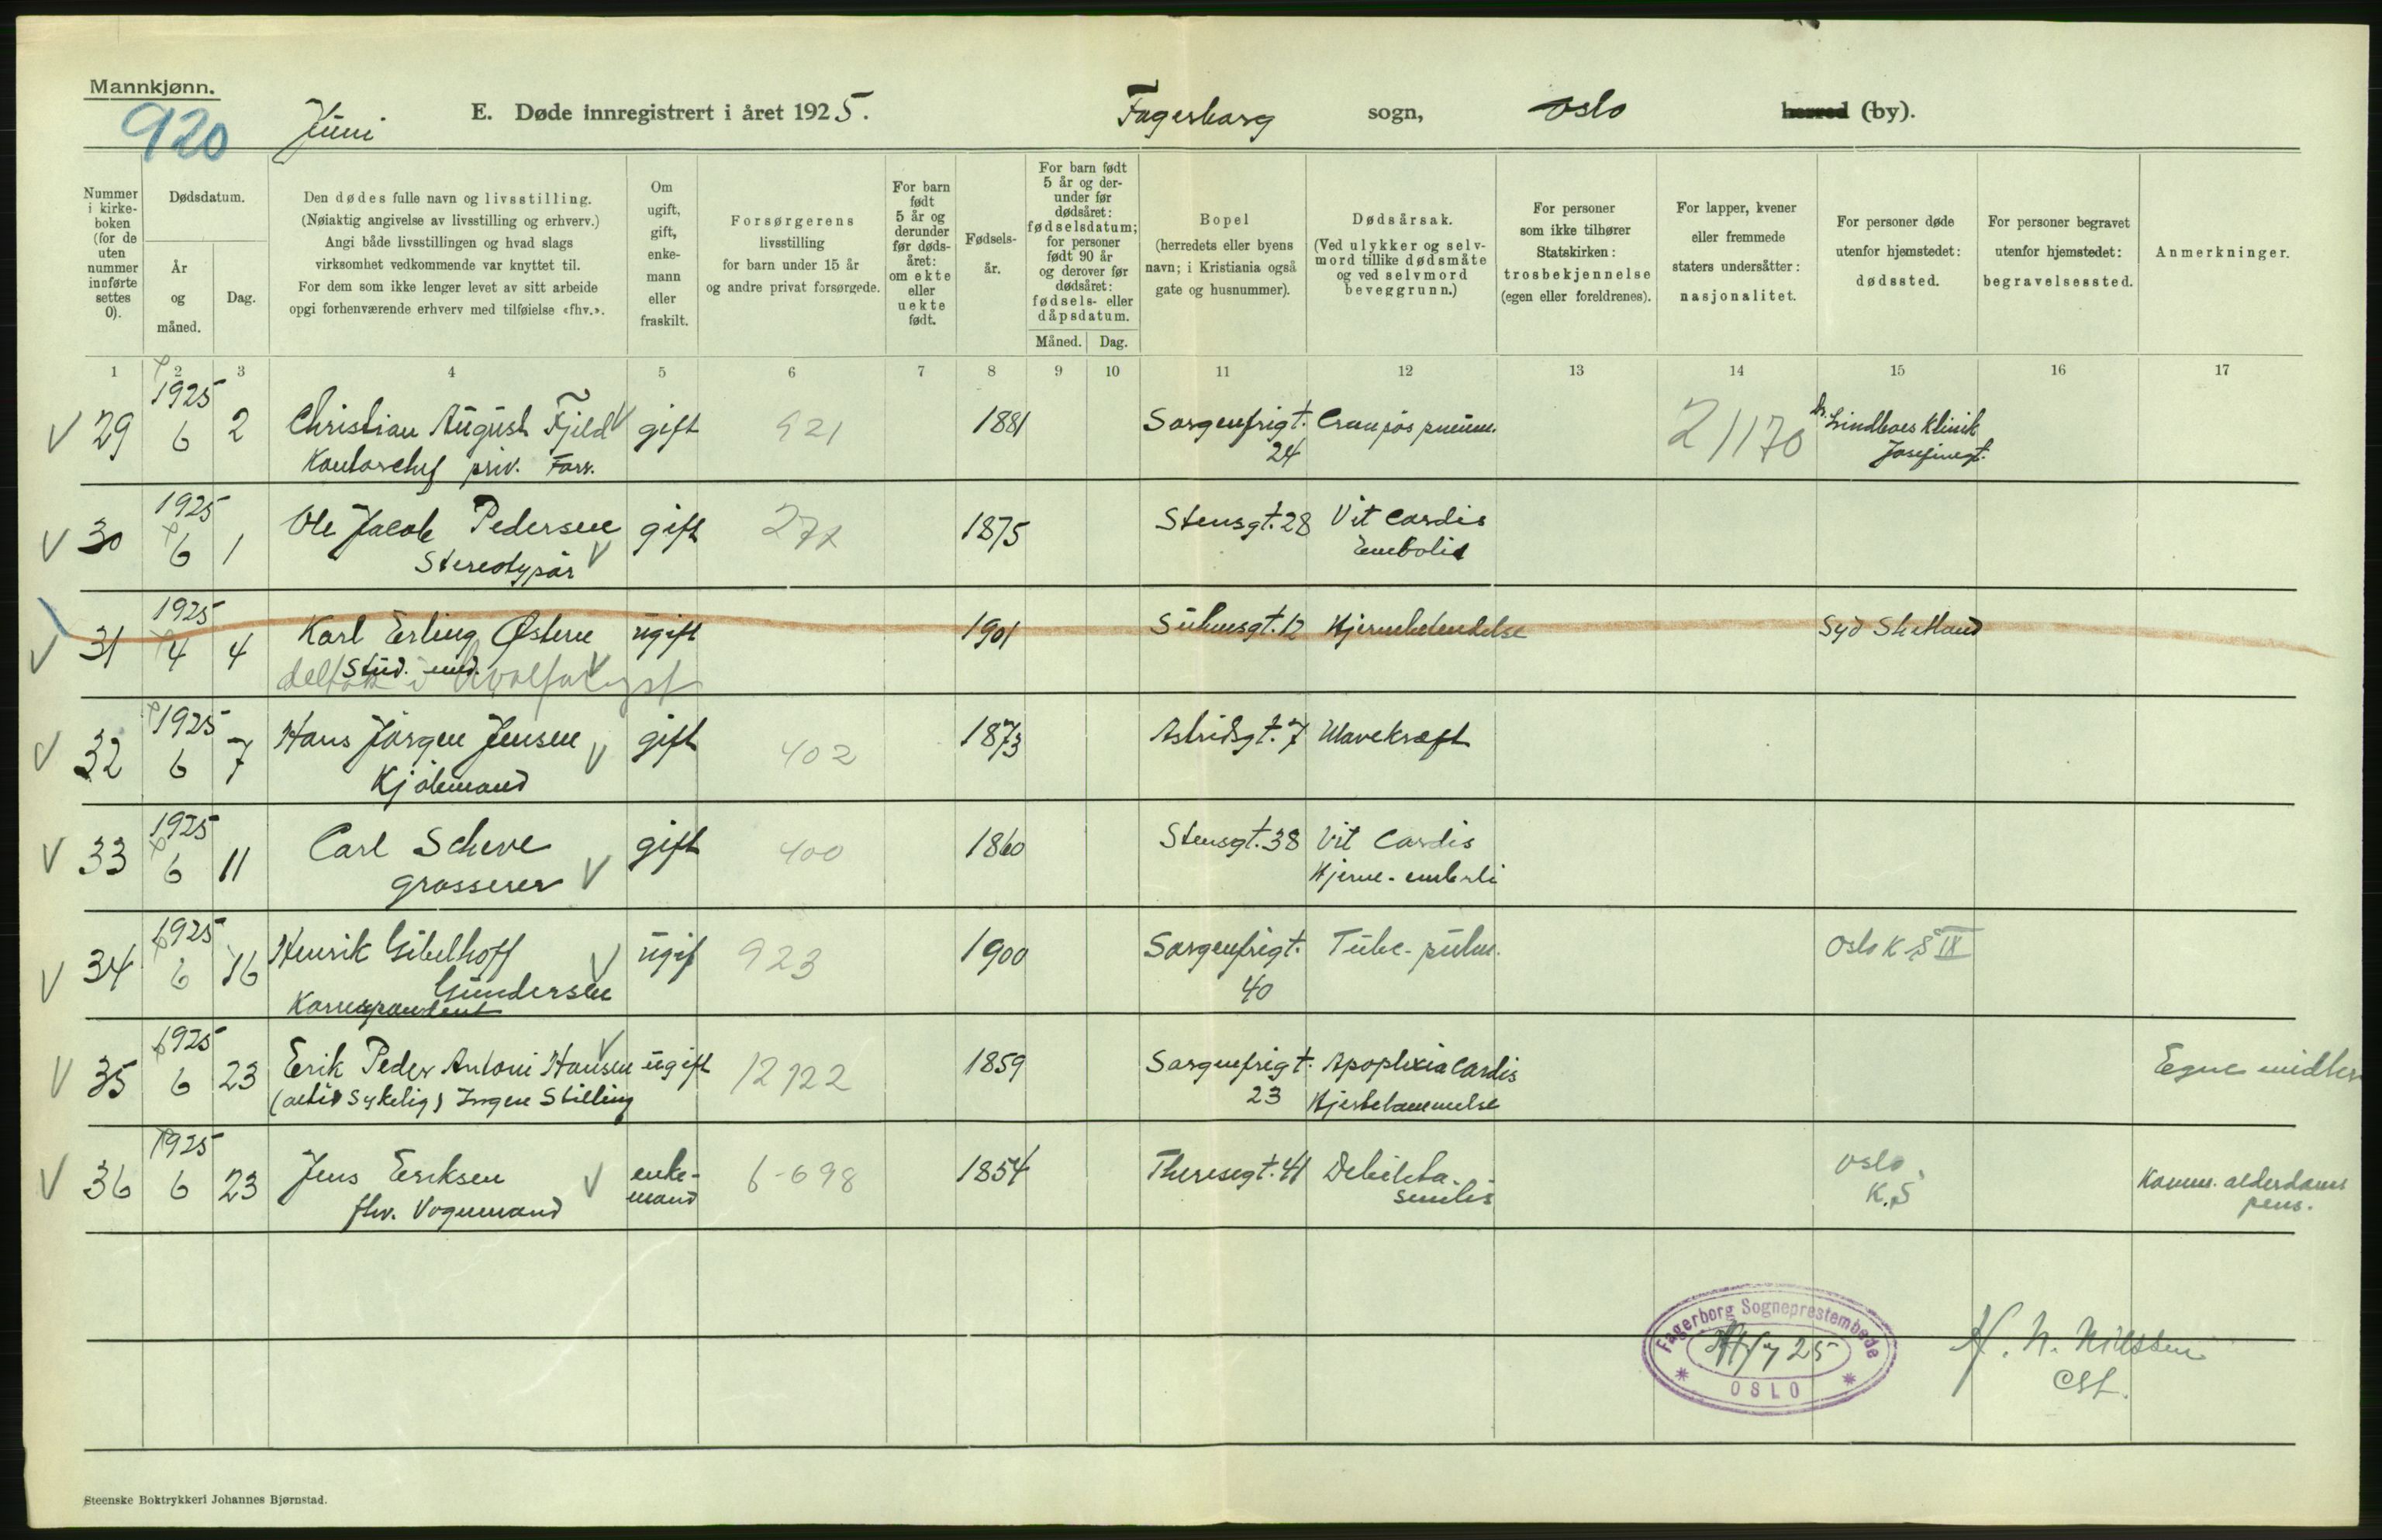 Mannkjønn.
920
Juni
E. Døde innregistrert i året 1925.
Fagerborg sogn, Oslo herred (by).
Nummer i kirke-boken (for de uten nummer innførte settes 0).
Dødsdatum.
År og måned.
Dag.
Den dødes fulle navn og livsstilling.
(Nøiaktig angivelse av livsstilling og erhverv.)
Angi både livsstillingen og hvad slags
virksomhet vedkommende var knyttet til.
For dem som ikke lenger levet av sitt arbeide
opgi forhenværende erhverv med tilføielse «fhv.».
Om ugift, gift, enke-mann eller fraskilt.
Forsørgerens
livsstilling
for barn under 15 år
og andre privat forsørgede.
For barn født 5 år og derunder før døds-året: om ekte eller uekte født.
Fødsels-år.
For barn født 5 år og der-under før dødsåret: fødselsdatum; for personer født 90 år og derover før dødsåret: fødsels- eller dåpsdatum.
Måned. Dag.
Bopel
(herredets eller byens
navn; i Kristiania også
gate og husnummer).
Dødsårsak.
(Ved ulykker og selv-
mord tillike dødsmåte
og ved selvmord
beveggrunn.)
For personer
som ikke tilhører
Statskirken:
trosbekjennelse
(egen eller foreldrenes).
For lapper, kvener
eller fremmede
staters undersåtter:
nasjonalitet.
For personer døde
utenfor hjemstedet:
dødssted.
For personer begravet
utenfor hjemstedet:
begravelsessted.
Anmerkninger.
1 2 3 4 5 6 7 8 9 10 11 12 13 14 15 16 17
1925
V 29 6 2 Christian August Fjeld V gift 921 1881 Sorgenfrigt. 24 Croupøs pneum. 2/170 Dr. Lindboes Klinik
Kontorchef priv. Forr. Josefinegt.
1925
V 30 6 1 Ole Jacob Pedersen gift 272 1875 Stensgt. 28 Vit cordis
Stereotypør V Embolie
1925
V 31 4 4 Karl Erling Østern ugift 1901 Suhmsgt. 12 Hjernebetendelse Syd Shetland
Stud. med. V
deltok i hvalfangst
1925
V 32 6 7 Hans Jørgen Jensen V gift 402 1873 Astridsgt. 7 Mavekræft
Kjølemand
1925
V 33 6 11 Carl Scheve gift 400 1860 Stensgt. 38 Vit Cordis
grosserer V Hjerne-emboli
1925
V 34 6 16 Henrik Gibelhoff V ugif 923 1900 Sorgenfrigt. 40 Tube-pulm. Oslo K S IX
Gundersen
Korrespondent
1925
V 35 6 23 Erik Peder Antoni Hansen V ugift 12122 1859 Sorgenfrigt. 23 Apoplexia Cordis Egne midler
(altid sykelig) Ingen Stilling Hjertelammelse
1925
V 36 6 23 Jens Eriksen V enke-mand 6-698 1854 Theresegt. 41 Debilita. Oslo K.S Komm. alderdoms
fhv. Vognmand senilis pens.
Fagerborg Sogneprestembede
OSLO
H. N. Nilssen
Steenske Boktrykkeri Johannes Bjørnstad.